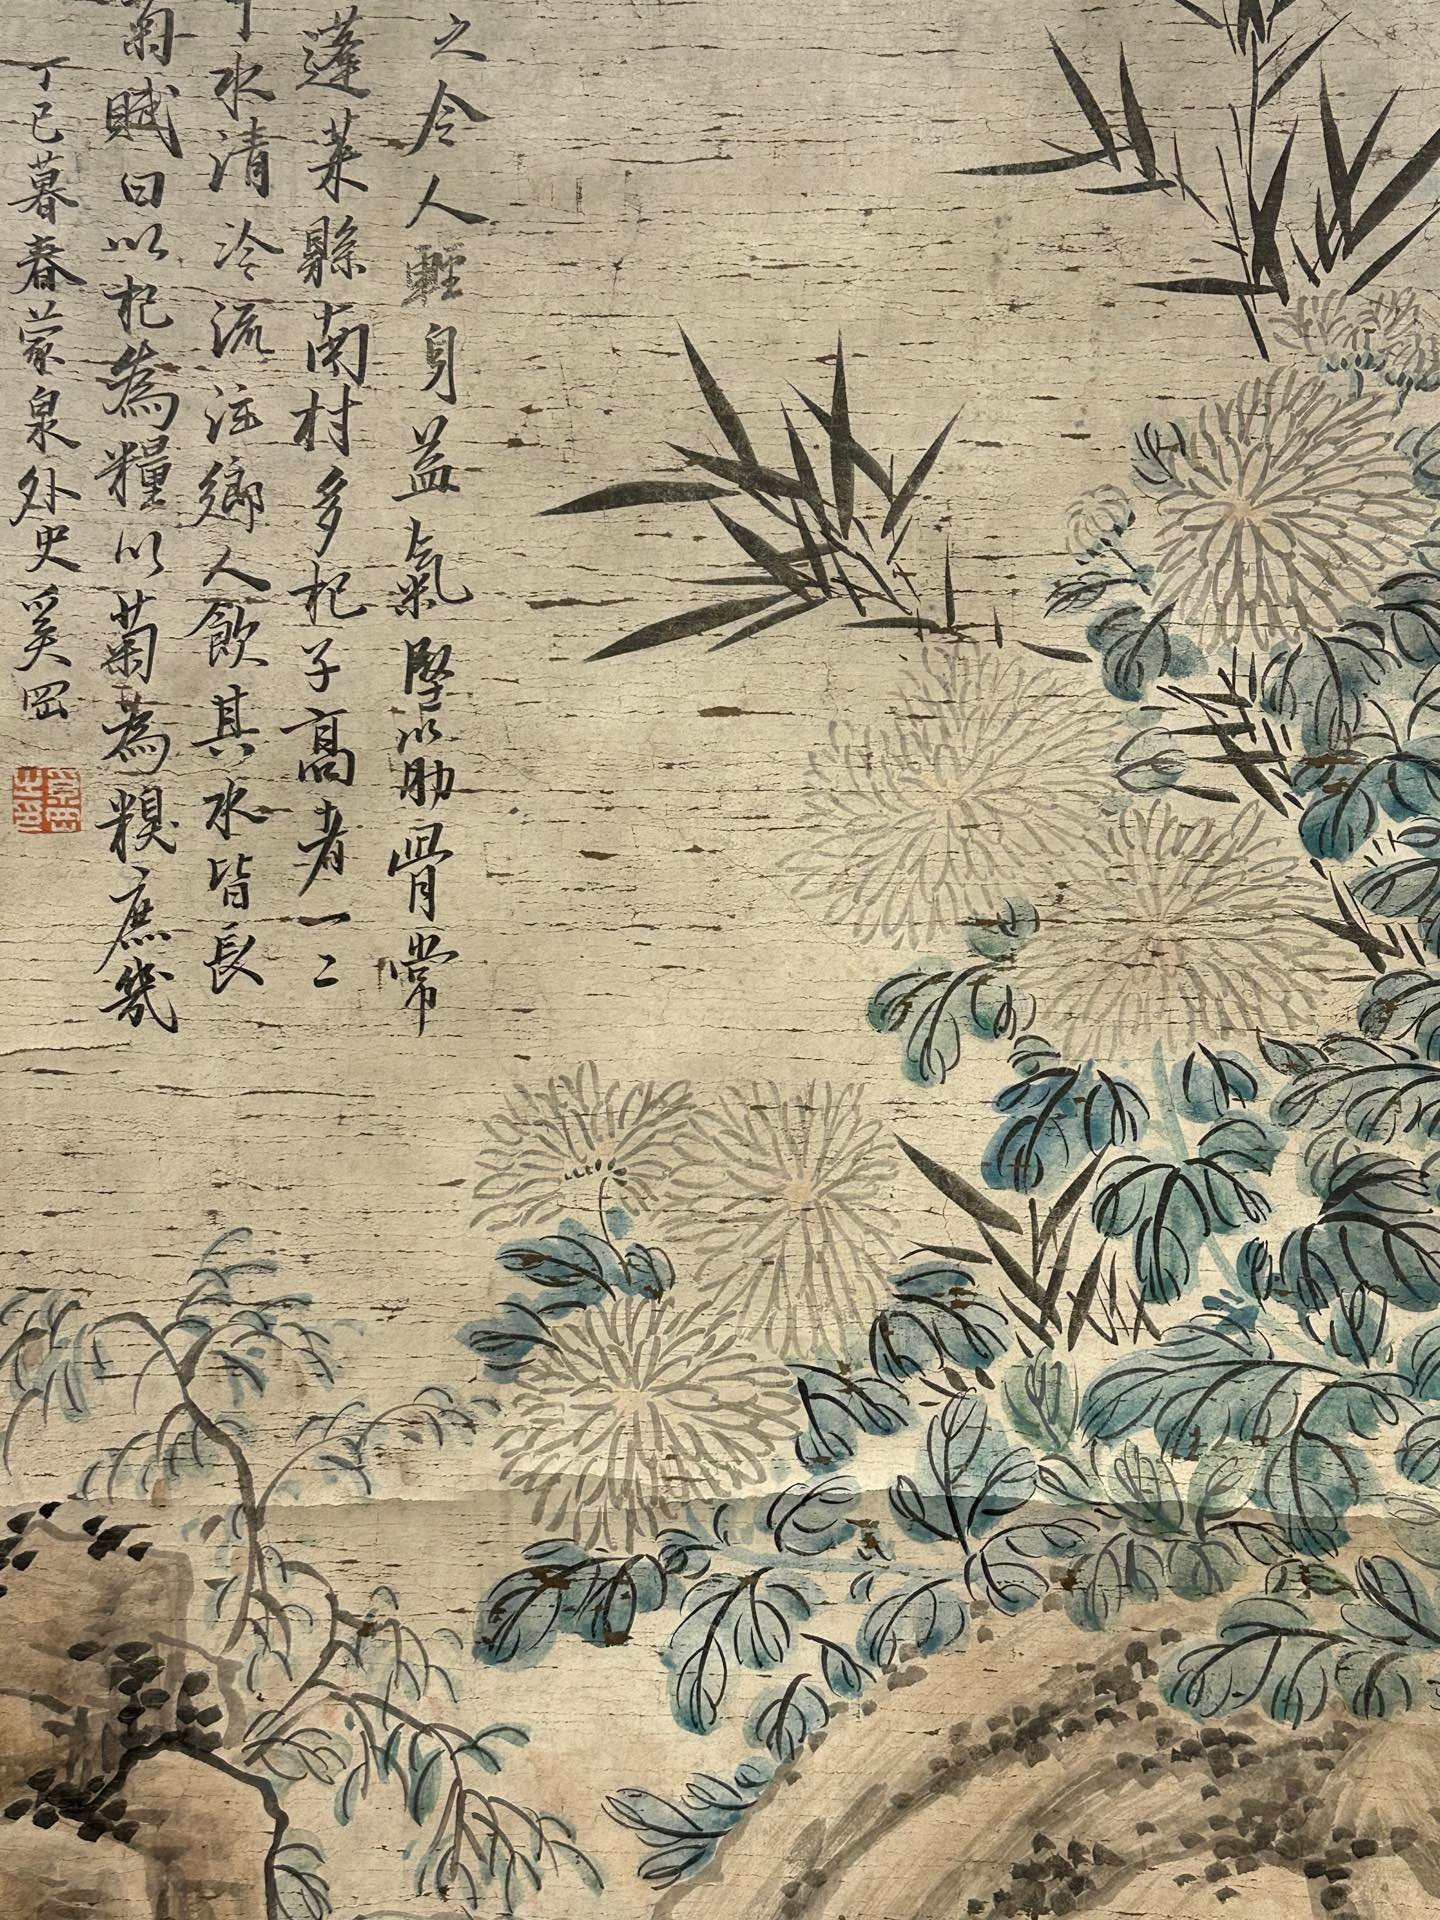 之令人輕身益氣堅筋骨常
蓬莱縣南村多杞子高者一二
水清冷流注鄉人飲其水皆長
菊賦曰以杞為糧以菊為糗庶幾
丁巳暮春蒙泉外史奚岡